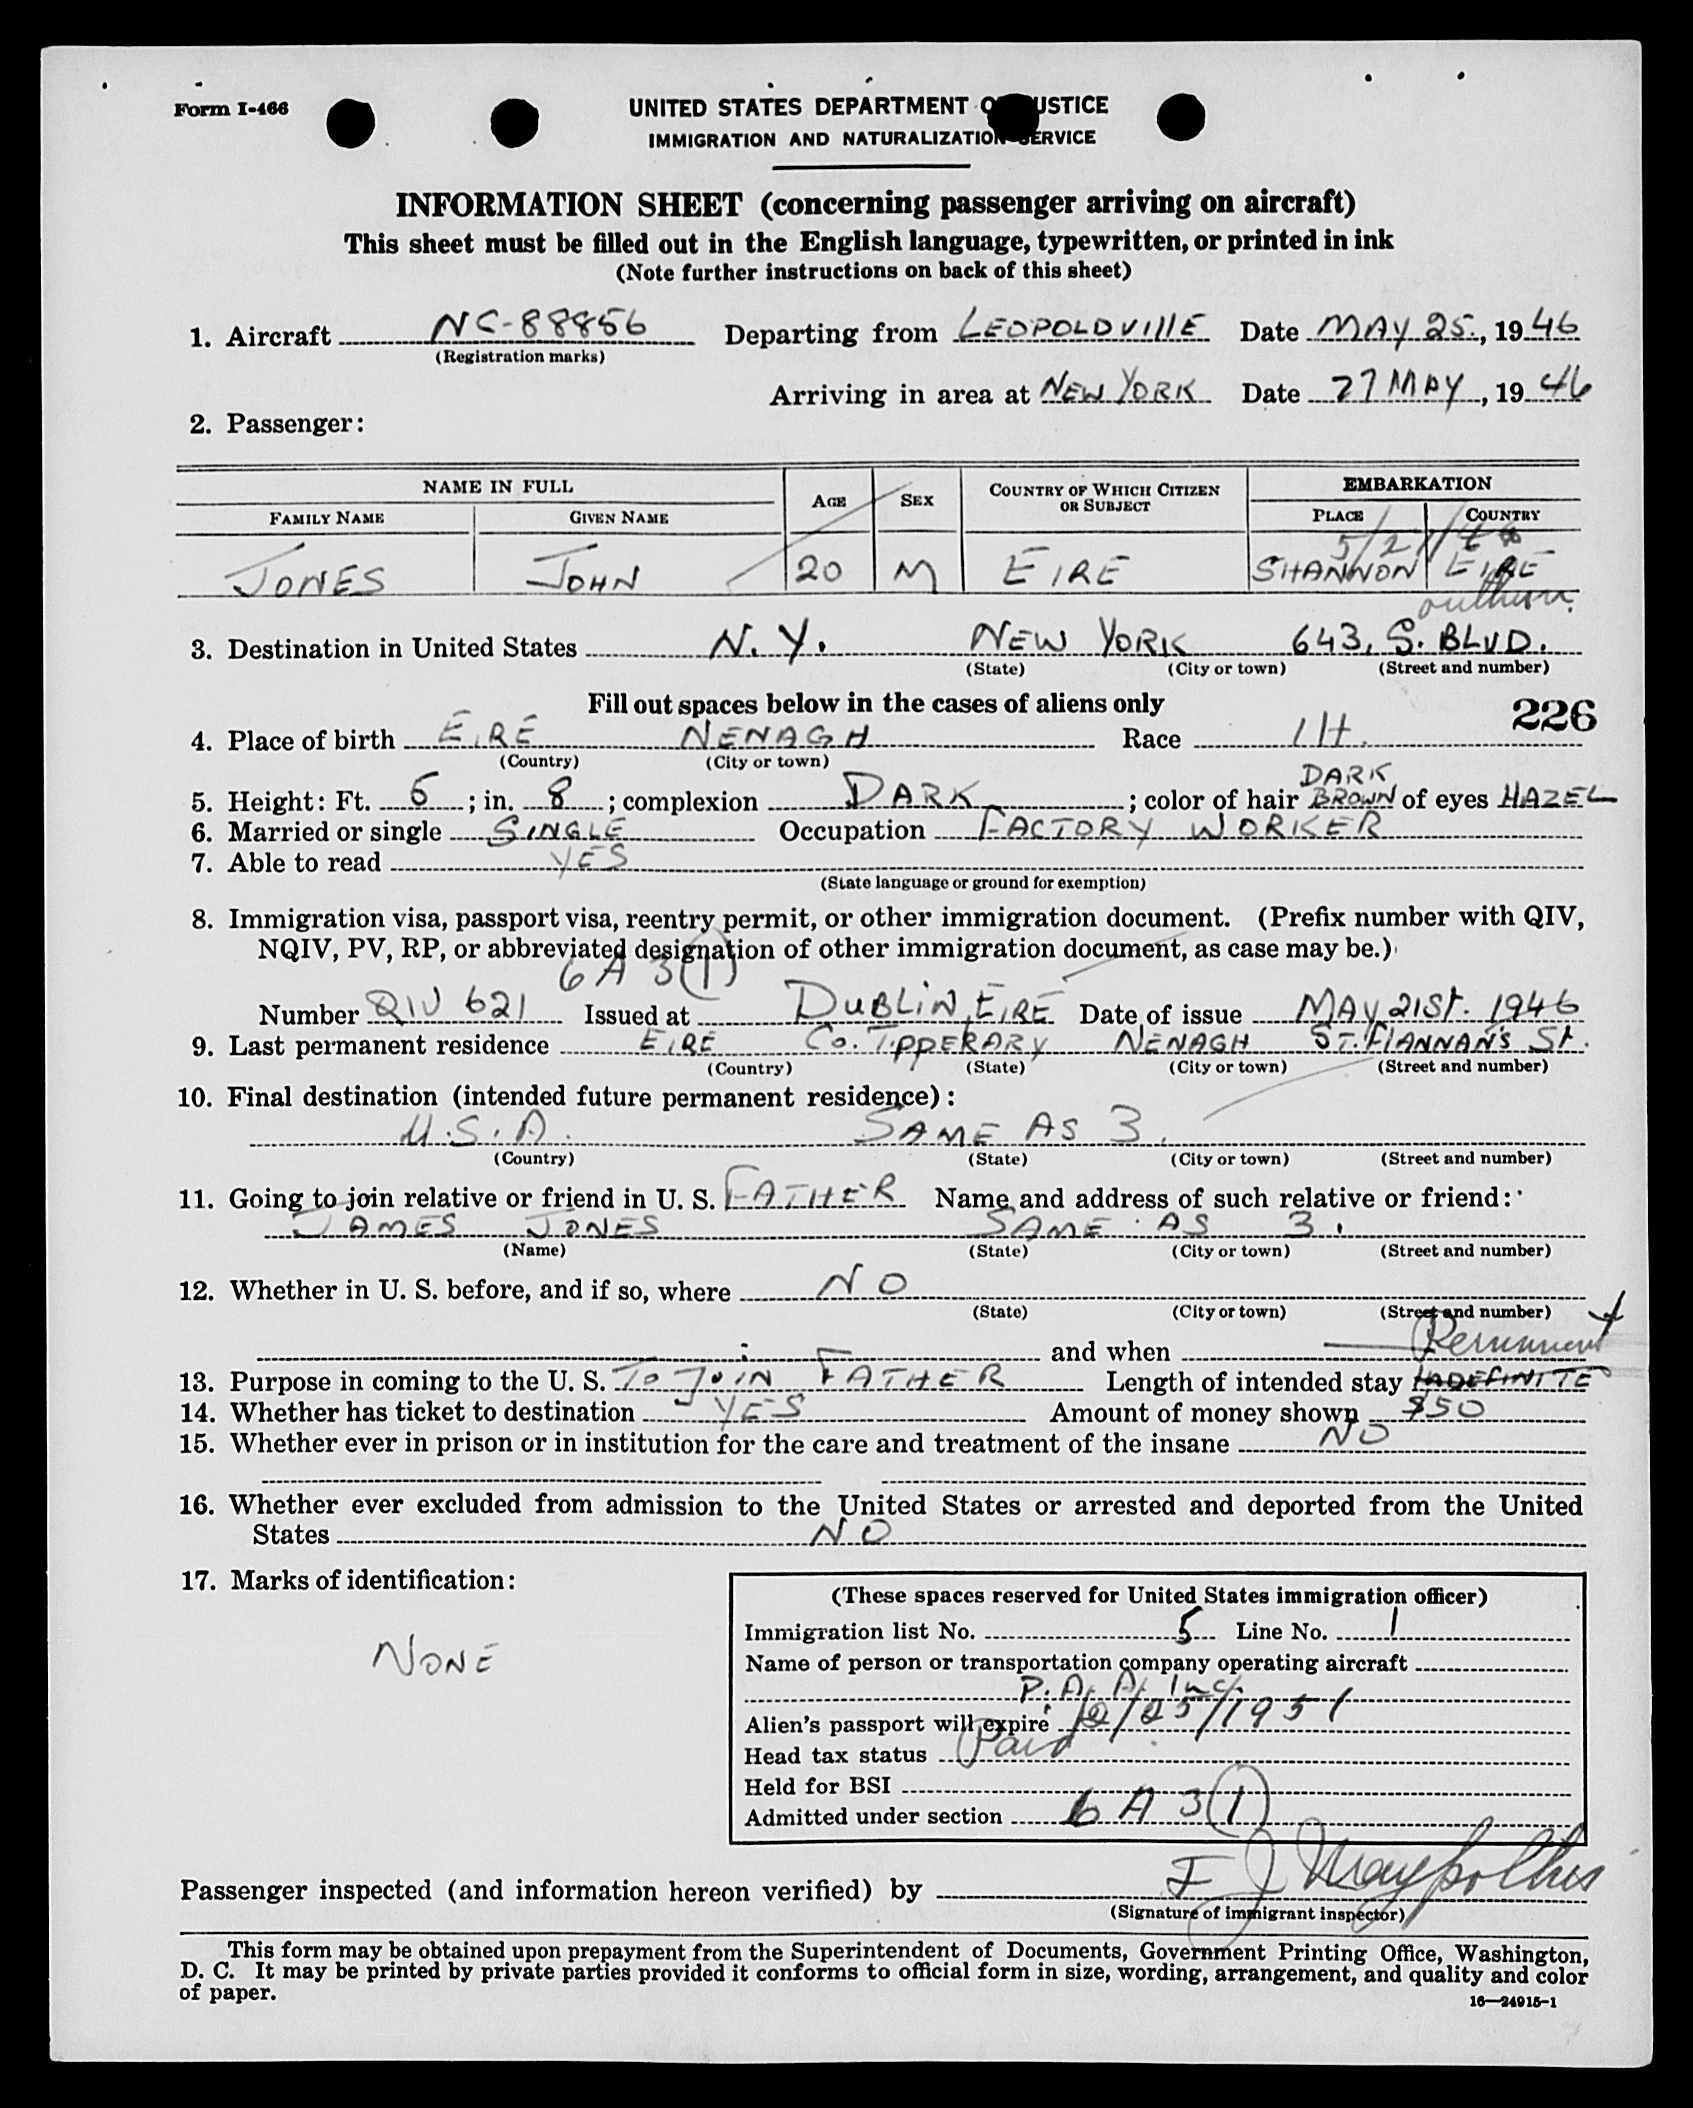 Form I-466
UNITED STATES DEPARTMENT OF JUSTICE
IMMIGRATION AND NATURALIZATION SERVICE
INFORMATION SHEET (concerning passenger arriving on aircraft)
This sheet must be filled out in the English language, typewritten, or printed in ink
(Note further instructions on back of this sheet)
1. Aircraft NC-88856 Departing from LEOPOLDVILLE Date MAY 25, 1946
(Registration marks)
Arriving in area at NEW YORK Date 27 MAY, 1946
2. Passenger:
NAME IN FULL AGE SEX COUNTRY OF WHICH CITIZEN OR SUBJECT EMBARKATION
FAMILY NAME GIVEN NAME PLACE COUNTRY
JONES JOHN 20 M EIRE SHANNON EIRE
3. Destination in United States N.Y. NEW YORK 643, S. BLVD.
(State) (City or town) (Street and number)
Fill out spaces below in the cases of aliens only
226
4. Place of birth EIRE NENAGH Race IH.
(Country) (City or town)
DARK
5. Height: Ft. 5; in. 8; complexion DARK; color of hair BROWN of eyes HAZEL
6. Married or single SINGLE Occupation FACTORY WORKER
7. Able to read YES
(State language or ground for exemption)
8. Immigration visa, passport visa, reentry permit, or other immigration document. (Prefix number with QIV,
NQIV, PV, RP, or abbreviated designation of other immigration document, as case may be.)
6 A 3 (1)
Number QIV 621 Issued at DUBLIN, EIRE Date of issue MAY 21st. 1946
9. Last permanent residence EIRE Co. TIPPERARY NENAGH ST. FLANNAN'S St.
(Country) (State) (City or town) (Street and number)
10. Final destination (intended future permanent residence):
U.S.A. SAME AS 3.
(Country) (State) (City or town) (Street and number)
11. Going to join relative or friend in U. S. FATHER Name and address of such relative or friend:
JAMES JONES SAME AS 3.
(Name) (State) (City or town) (Street and number)
12. Whether in U. S. before, and if so, where NO
(State) (City or town) (Street and number)
; and when
Permanent
13. Purpose in coming to the U. S. TO JOIN FATHER Length of intended stay INDEFINITE
14. Whether has ticket to destination YES Amount of money shown $50
15. Whether ever in prison or in institution for the care and treatment of the insane NO
16. Whether ever excluded from admission to the United States or arrested and deported from the United
States NO
17. Marks of identification:
NONE
(These spaces reserved for United States immigration officer)
Immigration list No. 5 Line No. 1
Name of person or transportation company operating aircraft
P. A. A. Inc.
Alien's passport will expire /25/1951
Head tax status Paid
Held for BSI
Admitted under section 6 A 3 (1)
Passenger inspected (and information hereon verified) by
(Signature of immigrant inspector)
This form may be obtained upon prepayment from the Superintendent of Documents, Government Printing Office, Washington,
D. C. It may be printed by private parties provided it conforms to official form in size, wording, arrangement, and quality and color
of paper.
16—24915-1